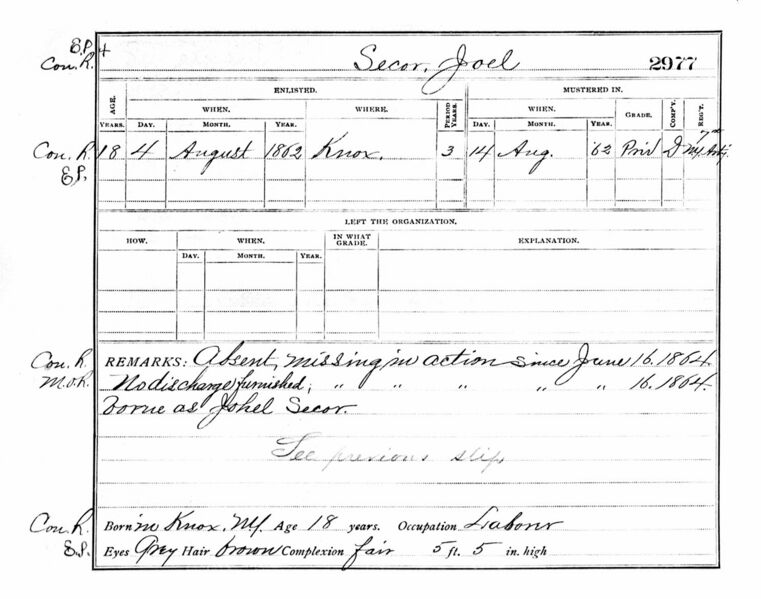 E.P. +
Con. R. Secor, Joel 2977
AGE. ENLISTED. MUSTERED IN.
WHEN. WHERE. PERIOD YEARS. WHEN. GRADE. COMP'Y. REG'T.
YEARS. DAY. MONTH. YEAR. DAY. MONTH. YEAR.
Con. R. 18 4 August 1862 Knox. 3 14 Aug. '62 Priv D 7th NY. Arty.
E.P.
LEFT THE ORGANIZATION.
HOW. WHEN. IN WHAT GRADE. EXPLANATION.
DAY. MONTH. YEAR.
Con. R. REMARKS: Absent, missing in action since June 16. 1864.
M.O.R. No discharge furnished; " " " " " 16. 1864.
Borne as Johel Secor.
See previous slip
Con. R. Born in Knox. NY. Age 18 years. Occupation Laborer
E.P. Eyes Grey Hair brown Complexion fair 5 ft. 5 in. high